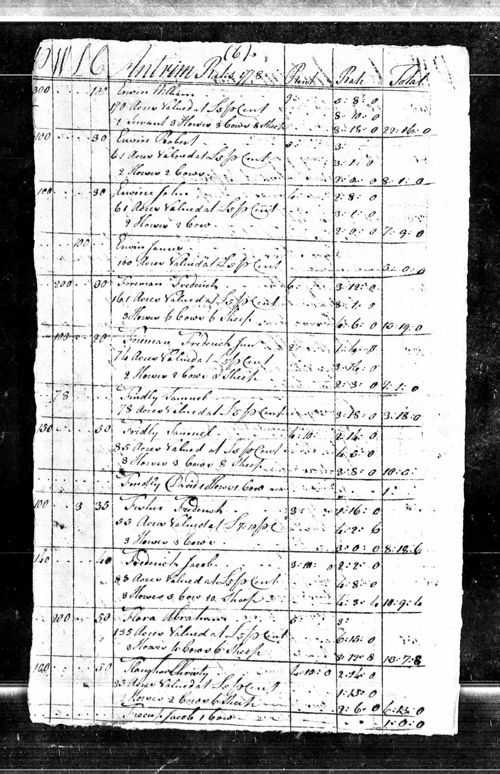 (6)
P W S C Antrim Rates 1778 Rent Rate Total
300 100 Erwin William 0:8:0
170 Acres Valued at £5 p Cent 8:10:0
1 Servant 3 Horses 3 Cows 8 Sheep 8:18:0 22:16:0
100 30 Erwin Robert 3:
61 Acres Valued at £5 p Cent 3:1:0
2 Horses 2 Cows 2:0:0 8:1:0
100 30 Erwine John 2:8:0
61 Acres Valued at £5 p Cent 3:1:0
2 Horses 2 Cows 2:0:0 7:9:0
100 Erwin James
100 Acres Valued at £5 p Cent 5:0:0
200 30 Foreman Frederick 6: 3:12:0
161 Acres Valued at £5 p Cent 8:1:0
3 Horses 6 Cows 6 Sheep 13:19:0
100 30 Foreman Frederick Jun 1:4:0
74 Acres Valued at £5 p Cent 3:14:0
2 Horses 2 Cows Sheep 2:3:0 7:1:0
78 Findly Samuel
78 Acres Valued at £5 p Cent 3:18:0 3:18:0
150 50 Fridly Samuel 4:10: 2:14:0
85 Acres Valued at £5 p Cent 4:5:0
3 Horses 3 Cows 8 Sheep 3:8:0
Findly David 1 Horse 1 Cow 1:
100 3 35 Frederick 3: 1:16:0
33 Acres Valued at £7:10 p C 4:2:6
3 Horses 3 Cows 3:0:0 8:18:6
140 40 Frederick Jacob 3:10:0 2:2:0
83 Acres Valued at £5 p Cent 4:3:0
3 Horses 3 Cows 20 Sheep 4:3:4 10:9:4
200 50 Flora Abraham 5 3:
135 Acres Valued at £5 p Cent 6:15:0
3 Horses 4 Cows 6 Sheep 13:7:8
150 50 Christy 4:10:0 2:14:0
33 Acres Valued at £5 p Cent 1:13:0
Horses 2 Cows 6 Sheep 2:6:0 6:13:0
Jacob 1 Cow 1:0:0